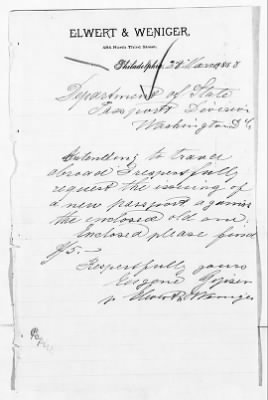 ELWERT & WENIGER,
North Third Street,
Philadelphia, 28 March 188
Department of State
Passport Division
Washington D.C.
Intending to travel
abroad I respectfully
request the issuing of
a new passport against
the enclosed old one.
Enclosed please find
$5.—
Respectfully yours
Eugene
p Elwert & Weniger